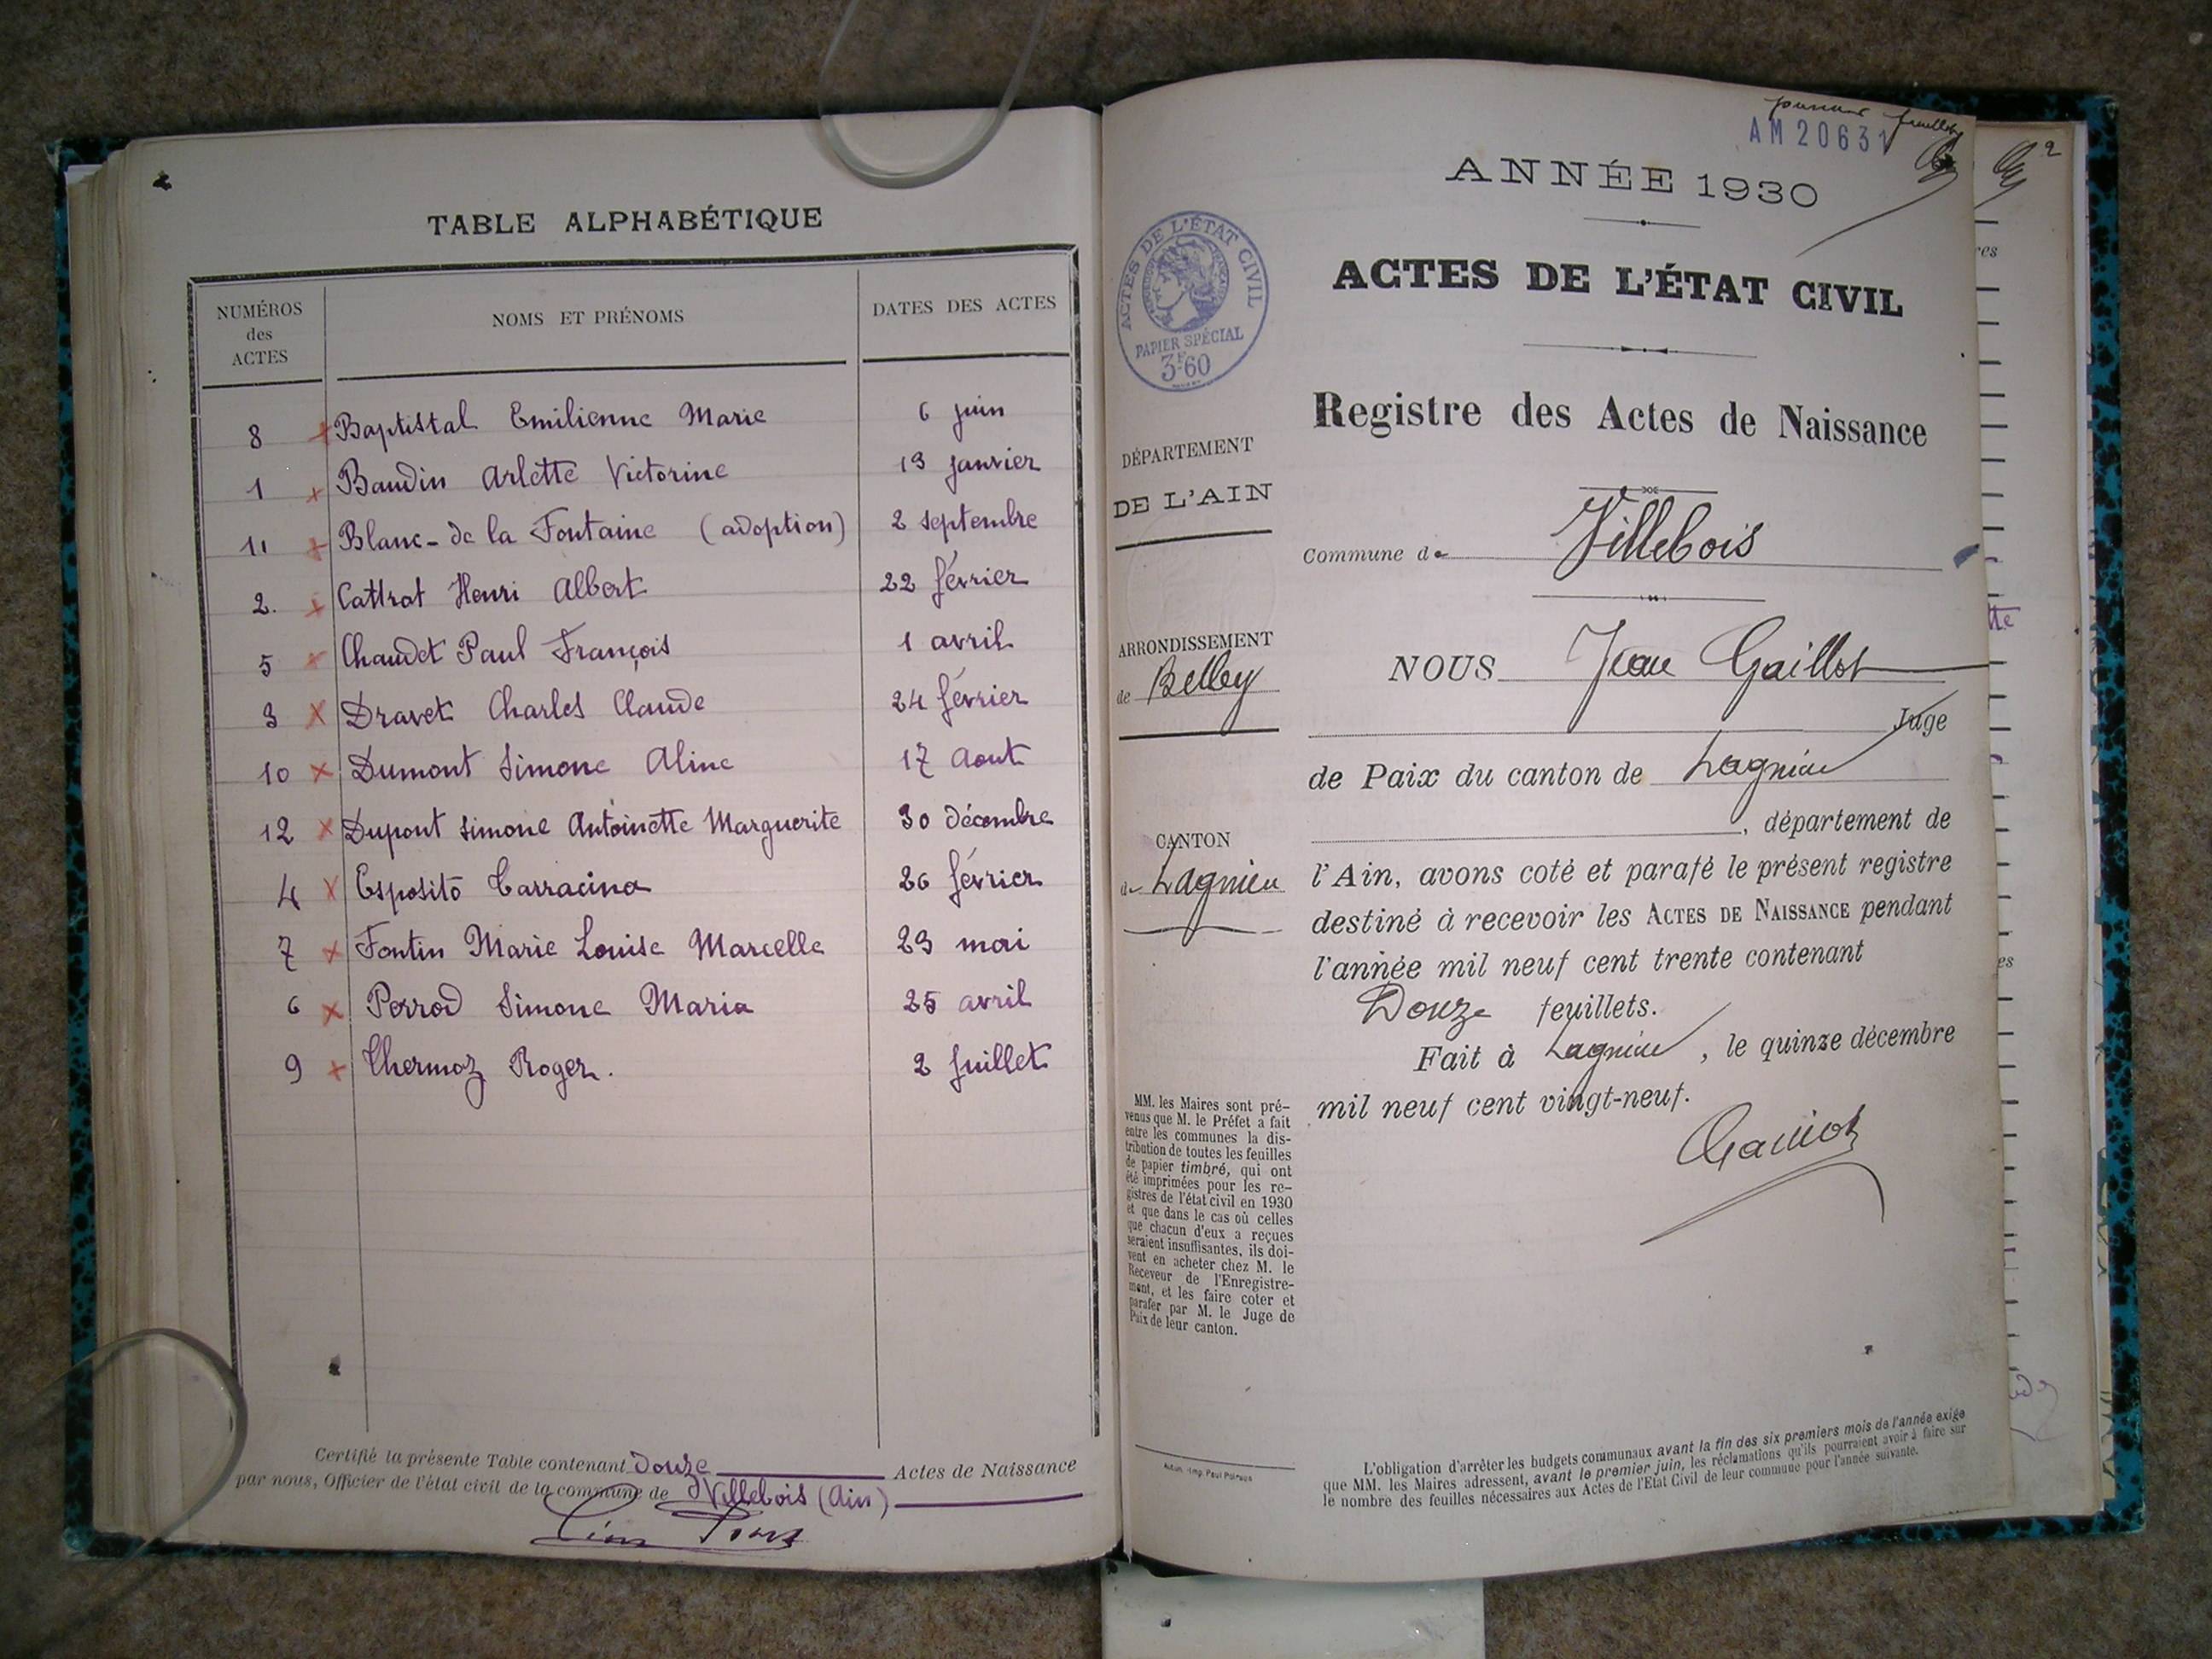 TABLE ALPHABÉTIQUE
NUMÉROS des ACTES
NOMS ET PRÉNOMS
DATES DES ACTES
8 Baptistal Emilienne Marie 6 juin
1 Baudin Arlette Victorine 13 janvier
11 Blanc-de la Fontaine (adoption) 2 septembre
2. Cattrat Henri Albert 22 février
5 Chaudet Paul François 1 avril
3 Dravet Charles Claude 24 février
10 Dumont Simone Aline 17 Aout
12 Dupont Simone Antoinette Marguerite 30 décembre
4 Esposito Carracina 26 février
7 Fontin Marie Louise Marcelle 23 mai
6 Perrod Simone Maria 25 avril
9 Thermoz Roger. 2 Juillet
Certifié la présente Table contenant Douze Actes de Naissance
par nous, Officier de l'état civil de la commune de Villebois (Ain)
AM 20631
ANNÉE 1930
ACTES DE L'ÉTAT CIVIL
ACTES DE L'ÉTAT CIVIL
PAPIER SPÉCIAL
3F60
Registre des Actes de Naissance
DÉPARTEMENT
DE L'AIN
Commune de Villebois
ARRONDISSEMENT
de Belley
CANTON
de Lagnieu
NOUS Jean Gaillot
Juge
de Paix du canton de Lagnieu
, département de
l'Ain, avons coté et parafé le présent registre
destiné à recevoir les ACTES DE NAISSANCE pendant
l'année mil neuf cent trente contenant
Douze feuillets.
Fait à Lagnieu, le quinze décembre
mil neuf cent vingt-neuf.
MM. les Maires sont pré-
venus que M. le Préfet a fait
entre les communes la dis-
tribution de toutes les feuilles
de papier timbré, qui ont
été imprimées pour les re-
gistres de l'état civil en 1930
et que dans le cas où celles
que chacun d'eux a reçues
seraient insuffisantes, ils doi-
vent en acheter chez M. le
Receveur de l'Enregistre-
ment, et les faire coter et
parafer par M. le Juge de
Paix de leur canton.
L'obligation d'arrêter les budgets communaux avant la fin des six premiers mois de l'année exige
que MM. les Maires adressent, avant le premier juin, les réclamations qu'ils pourraient avoir à faire sur
le nombre des feuilles nécessaires aux Actes de l'Etat Civil de leur commune pour l'année suivante.